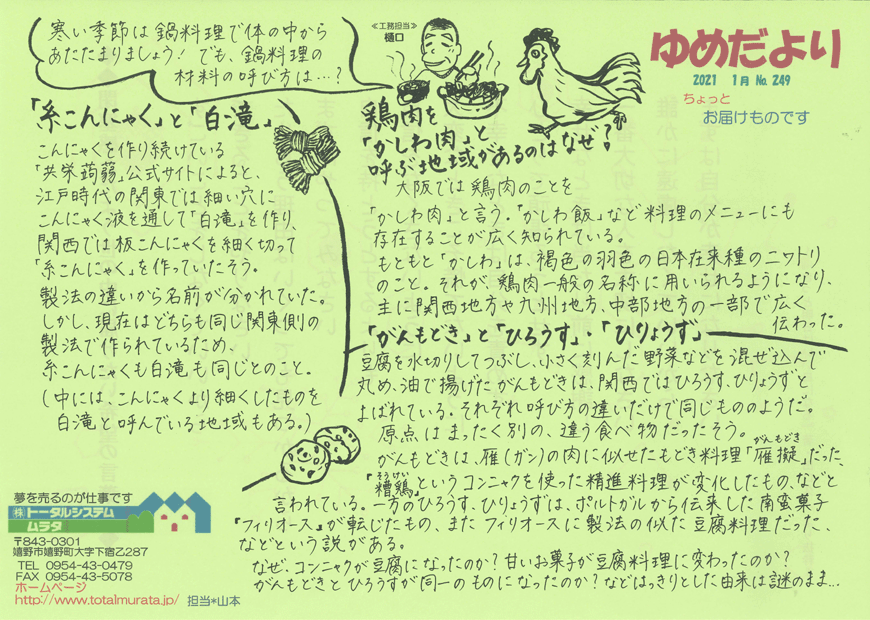 ゆめだより
2021 1月 No. 249
ちょっと
お届けものです
≪工務担当≫
樋口
寒い季節は鍋料理で体の中から
あたたまりましょう! でも、鍋料理の
材料の呼び方は…?
「糸こんにゃく」と「白滝」
こんにゃくを作り続けている
「共栄蒟蒻」公式サイトによると、
江戸時代の関東では細い穴に
こんにゃく液を通して「白滝」を作り、
関西では板こんにゃくを細く切って
「糸こんにゃく」を作っていたそう。
製法の違いから名前が分かれていた。
しかし、現在はどちらも同じ関東側の
製法で作られているため、
糸こんにゃくも白滝も同じとのこと。
(中には、こんにゃくより細くしたものを
白滝と呼んでいる地域もある。)
鶏肉を
「かしわ肉」と
呼ぶ地域があるのはなぜ?
大阪では鶏肉のことを
「かしわ肉」と言う。「かしわ飯」など料理のメニューにも
存在することが広く知られている。
もともと「かしわ」は、褐色の羽色の日本在来種のニワトリ
のこと。それが、鶏肉一般の名称に用いられるようになり、
主に関西地方や九州地方、中部地方の一部で広く
伝わった。
「がんもどき」と「ひろうす」・「ひりょうず」
豆腐を水切りしてつぶし、小さく刻んだ野菜などを混ぜ込んで
丸め、油で揚げたがんもどきは、関西ではひろうす、ひりょうずと
よばれている。それぞれ呼び方の違いだけで同じもののようだ。
原点はまったく別の、違う食べ物だったそう。
がんもどき
がんもどきは、雁(ガン)の肉に似せたもどき料理「雁擬」だった、
そうけい
「糟鶏」というコンニャクを使った精進料理が変化したもの、などと
言われている。一方のひろうす、ひりょうずは、ポルトガルから伝来した南蛮菓子
『フィリオース』が転じたもの、またフィリオースに製法の似た豆腐料理だった、
などという説がある。
なぜ、コンニャクが豆腐になったのか? 甘いお菓子が豆腐料理に変わったのか?
がんもどきとひろうすが同一のものになったのか? などはっきりとした由来は謎のまま…
夢を売るのが仕事です
㈱トータルシステム
ムラタ
〒843-0301
嬉野市嬉野町大字下宿乙287
TEL 0954-43-0479
FAX 0954-43-5078
ホームページ
http://www.totalmurata.jp/ 担当*山本